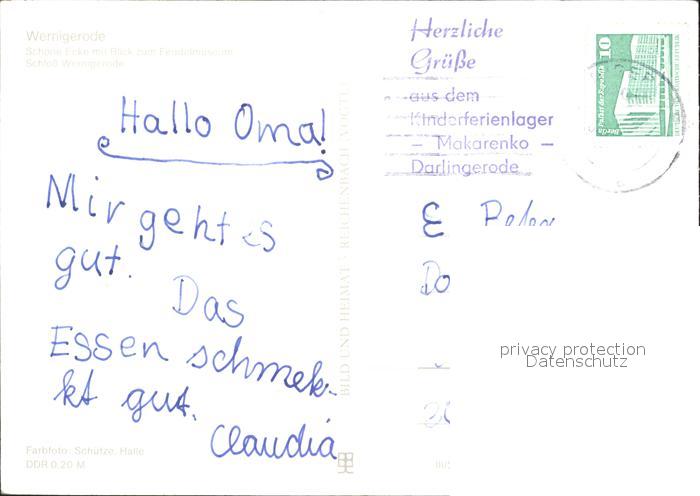 Wernigerode
Schöne Ecke mit Blick zum Feudalmuseum
Schloß Wernigerode
Hallo Oma!
Mir geht es
gut.
Das
Essen schmek-
kt gut.
Claudia
Farbfoto: Schütze, Halle
DDR 0,20 M
BILD UND HEIMAT · REICHENBACH
Herzliche
Grüße
aus dem
Kinderferienlager
– Makarenko –
Darlingerode
10
Berlin, Palast der Republik
E
privacy protection
Datenschutz